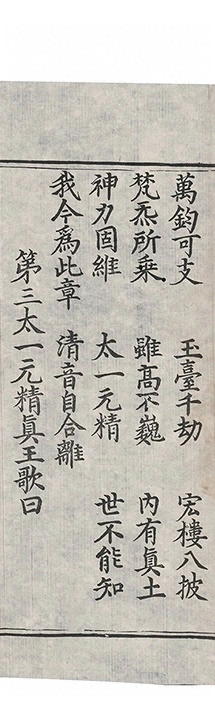 萬鈞可支　玉臺千劫　宏樓八披
梵炁所乗　雖髙不巍　内有真土
神力固維　太一元精　世不能知
我今爲此章　清音自合離
第三太一元精真王歌曰